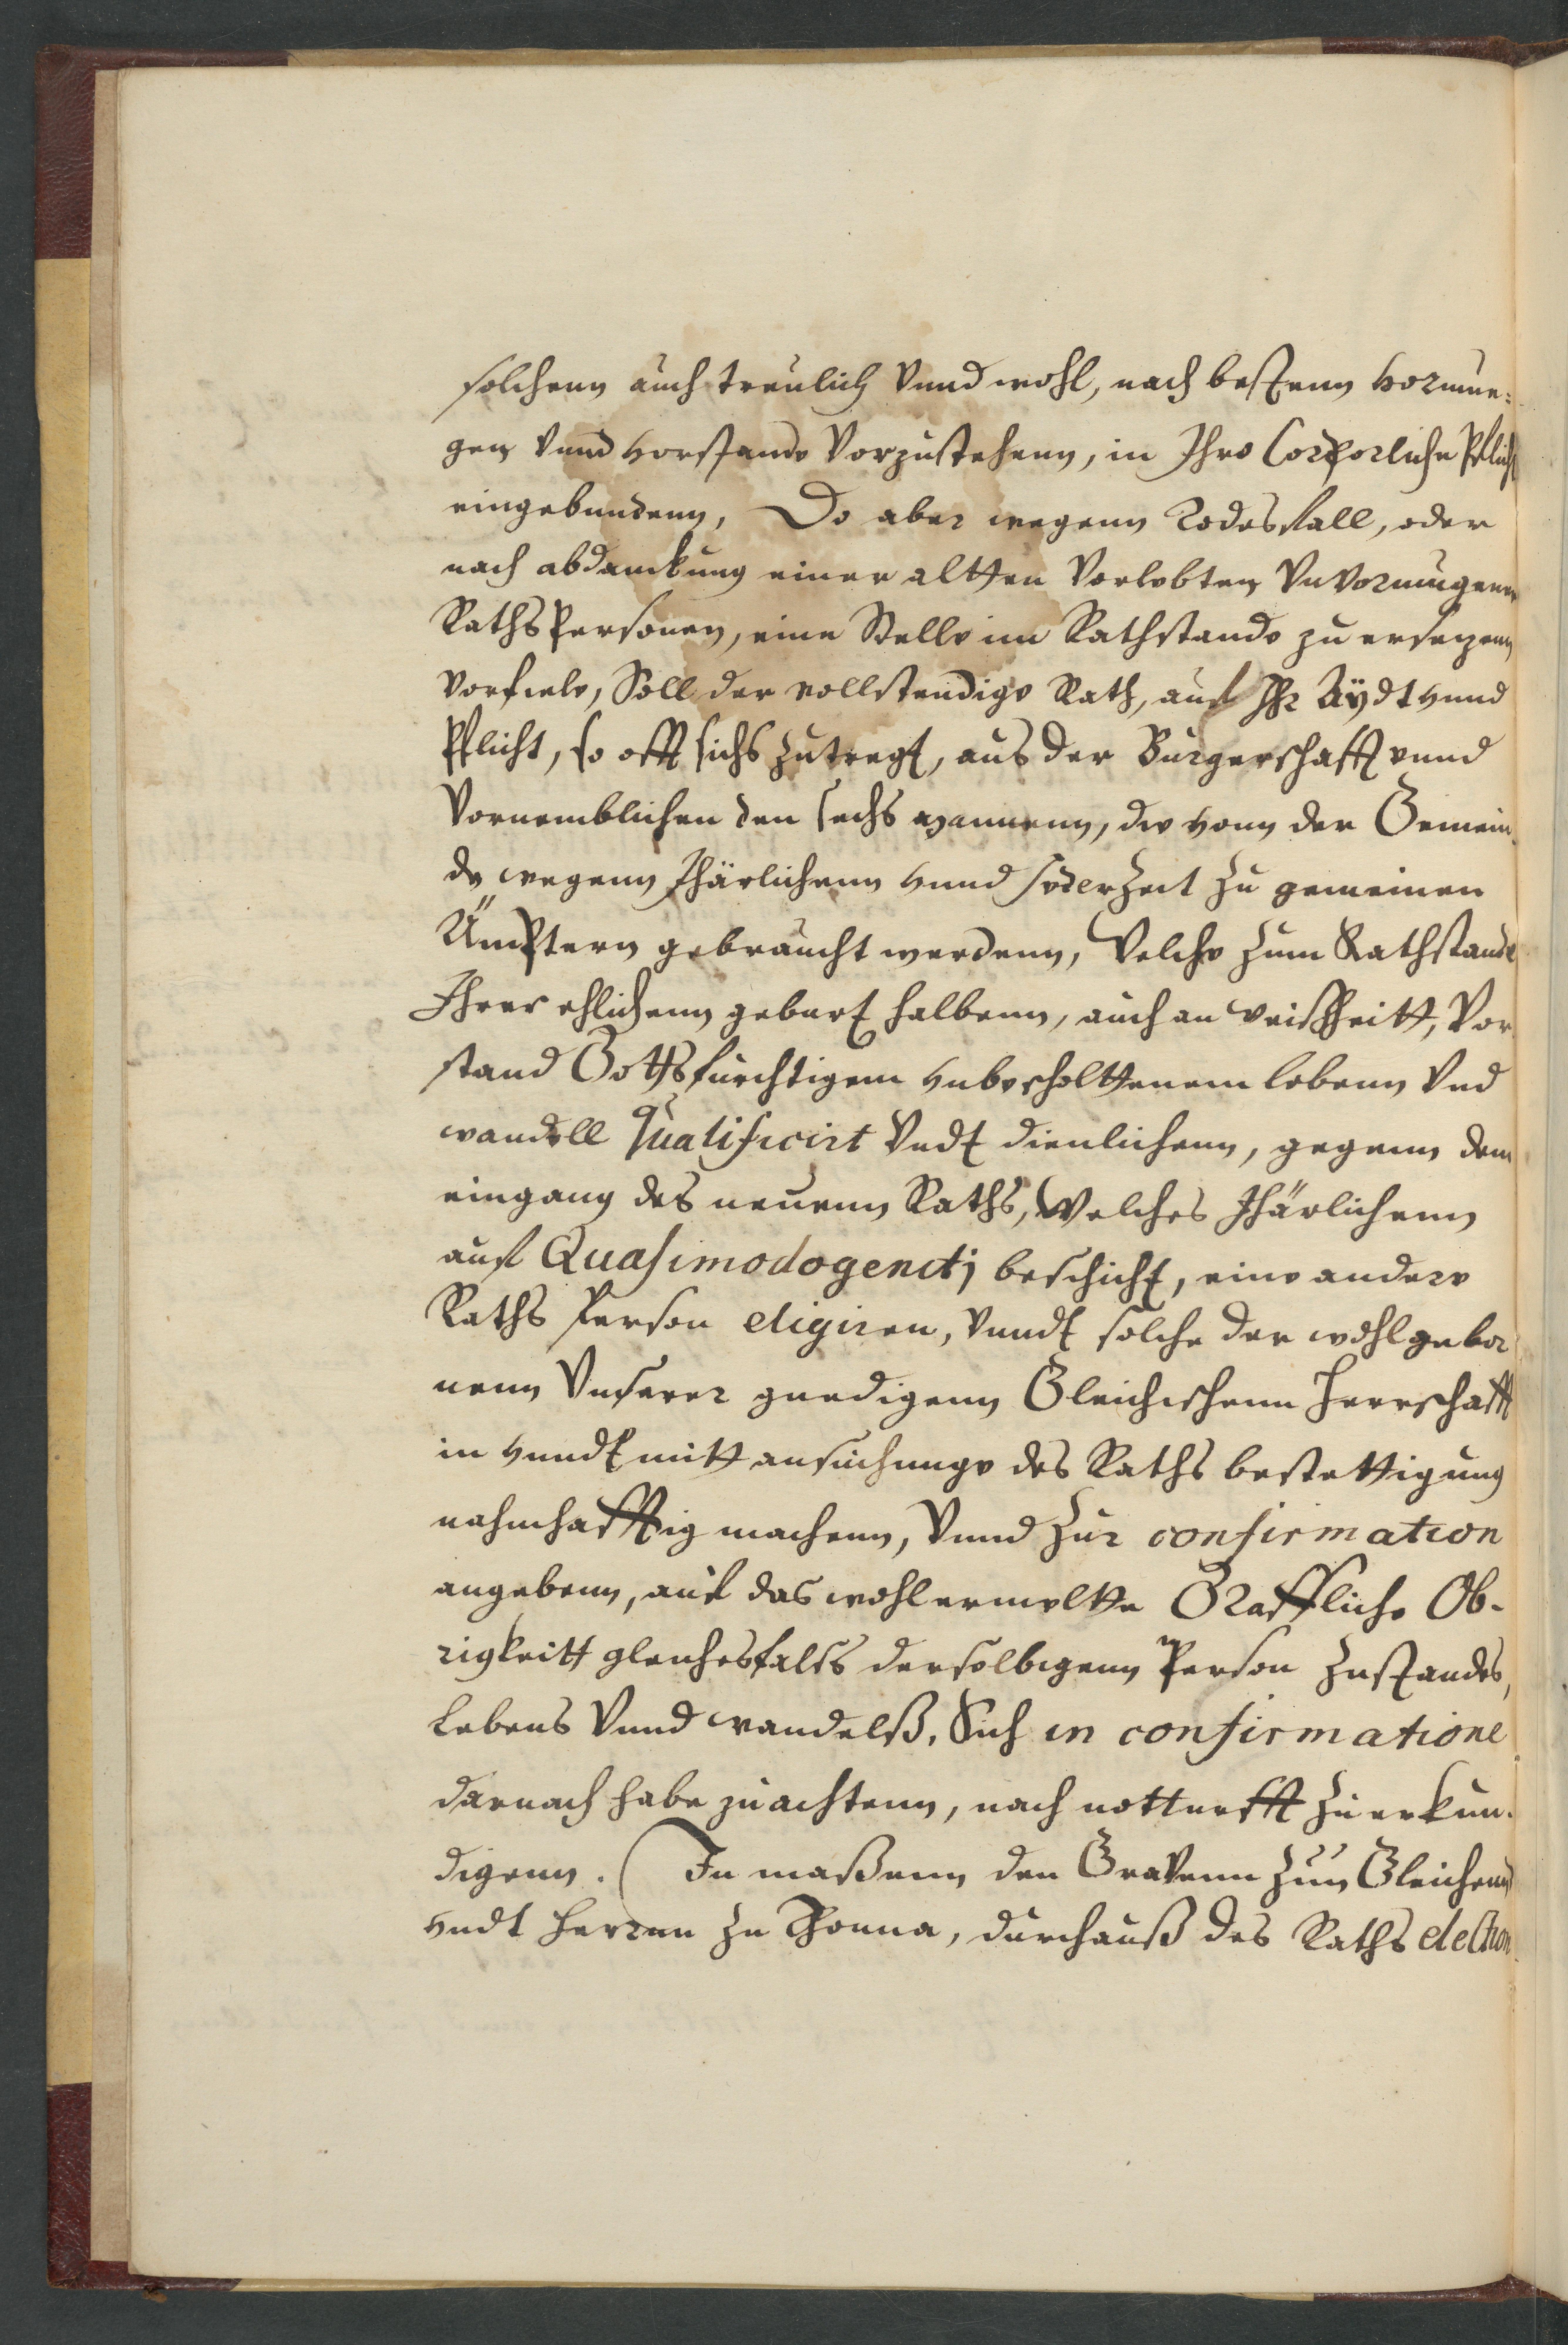 solchenn auch treulich Vnnd wohl, nach bestenn vormue¬
gen Vnnd vorstande Vorzustehenn, in Ihre Corporliche Pflicht
eingebundenn, Do aber wegenn Todesfall, oder
nach abdanckung einer altten Vorlebten Vnvormugenen
RathsPersonen, eine Stelle im Rathstande zu ersezenn
Vorfiele, Soll der vollstendige Rath, auf Ihr Aÿdt vnnd
Pflicht, so offt sichs zutregt, aus der Burgerschafft vnnd
Vornemblichen den sechs Mannenn, die vonn der Gemein¬
de wegenn Jhärlichenn vnnd jederZeit zu gemeinen
Ämptern gebraucht werdenn, Welche zum Rathstande
Ihrer ehlichenn geburt halbenn, auch an weißheitt, Vor¬
stand Gottsfurchtigem vnbescholttenem lebenn Vnd
wandell qualificirt Vndt dienlichenn, gegenn dem
eingang des neuenn Raths, Welches Jhärlichenn
auf Quasimodogenitj beschicht, eine andere
Raths Person eligiren, Vnndt solche der wohlgebor
nenn Vnserer gnedigenn Gleichischenn Herrschafft
in vnndt mitt ansuchunge des Raths bestettigung
nahmhafftig machenn, Vnnd zur confirmation
angebenn, auf das wohlermeltte Graffliche Ob¬
rigkeitt gleichesfalls derselbigenn Person zustandes,
Lebens Vnnd wandelß, Sich in confirmatione
darnach habe zuachtenn, nach notturfft zuerkun¬
digenn. (In maßenn den Gravenn zun Gleichenn
vndt Herren zu Thonna, durchauß des Raths election